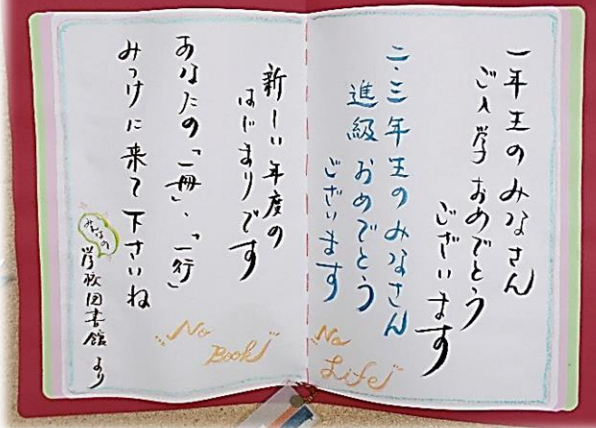 一年生のみなさん
ご入学おめでとう
ございます
二・三年生のみなさん
進級おめでとう
ございます
新しい年度の
はじまりです
あなたの「一冊」、「一行」
みつけに来て下さいね
みんなの
学校図書館より
"No Book"
"No Life"